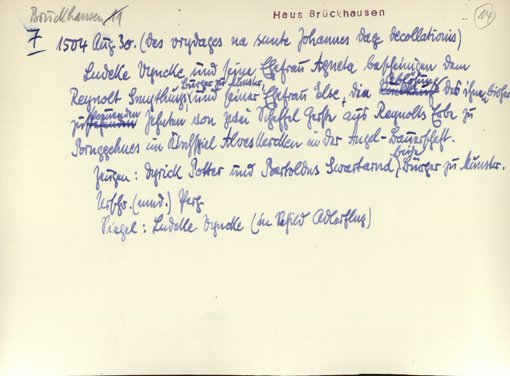 Brückhausen 11
Haus Brückhausen
(14)
7 1504 Aug. 30. (des vrydages na sunte Johannes dag decollationis)
Ludeke Vyncke und seine Ehefrau Agneta bescheinigen dem
Bürger zu Münster
Reynolt Smythus, und seiner Ehefrau Else, die Ablösung des ihnen bisher
zustehenden Zehnten von zehn Scheffel Gerste aus Reynolts Erbe zu
im Kirchspiel Alverskercken in der Angel-Bauerschaft.
Zeugen: Deryck Potter und Bertoldus Swartarnd, beide Bürger zu Münster.
Urschr. (mnd.) Perg.
Siegel: Ludeke Vyncke (im Schild Adlerflug)